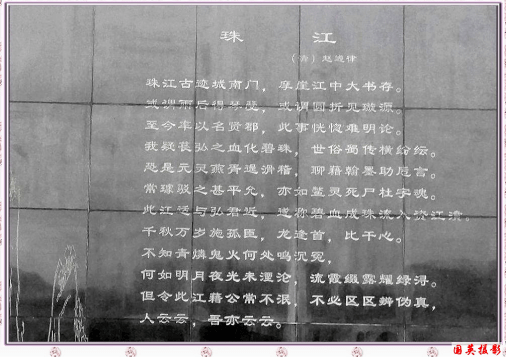 珠 江
（清）赵遵律
珠江古迹城南门，摩崖江中大书存。
或谓雨后得琴瑟，或谓圆折见璇源。
至今牟以名贤郡，此事恍惚难明论。
我疑苌弘之血化碧珠，世俗蜀传横纷纭。
恐是元灵燕胥逞滑稽，聊藉翰墨助卮言。
常璩驳之甚平允，亦如鳖灵死尸杜宇魂。
此江适与弘君近，遂称碧血成珠流入资江濆。
千秋万岁旌孤臣，龙逢首，比干心。
不知青燐鬼火何处鸣沉冤，
何如明月夜光未湮沦，流霞缀露耀绿浔。
但令此江藉公常不泯，不必区区辨伪真，
人云云，吾亦云云。
国英摄影